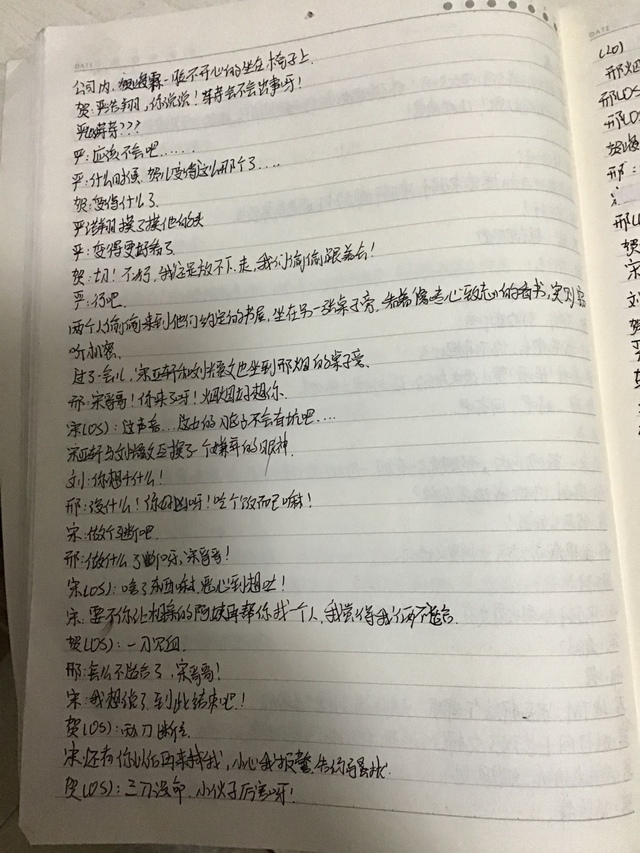 DATE
公司内,贺峻霖一脸不开心的坐在椅子上.
贺:严浩翔,你说说!等等会不会出事呀!
严:等等???
严:应该不会吧......
严:什么时候,贺儿变得这么那个了....
贺:变得什么了.
严浩翔摸了摸他的头
严:变得更好看了.
贺:切!不行,我还是放不下,走,我们偷偷跟着去!
严:行吧.
两个人偷偷来到他们约定的书屋,坐在另一张桌子旁,知着像"专心致志"的看书,实则
听机密.
过了一会儿,宋亚轩和刘耀文也坐到邢烟的桌子旁.
邢:宋哥哥!你来了呀!烟烟好想你.
宋(OS):这声音...这女的脑子不会有坑吧....
宋亚轩与刘耀文互换了一个嫌弃的眼神.
刘:你想干什么!
邢:没什么!你好凶呀!吃个饭而已嘛!
宋:做个了断吧.
邢:做什么了断呀,宋哥哥!
宋(OS):啥了东西啊,恶心到想吐!
宋:要不你让相亲的阿姨再帮你找一个人,我觉得我们俩不适合.
贺(OS):一刀见血.
邢:怎么不适合了,宋哥哥!
宋:我想说了,到此结束吧!
贺(OS):两刀断
宋:还有你以后再来找我,小心我报警,告你骚扰.
贺(OS):三刀没命,小伙子厉害呀!
DATE
(20)
邢烟
邢(OS
邢(OS
贺峻
邢:
邢(
贺
宋
刘
贺
严